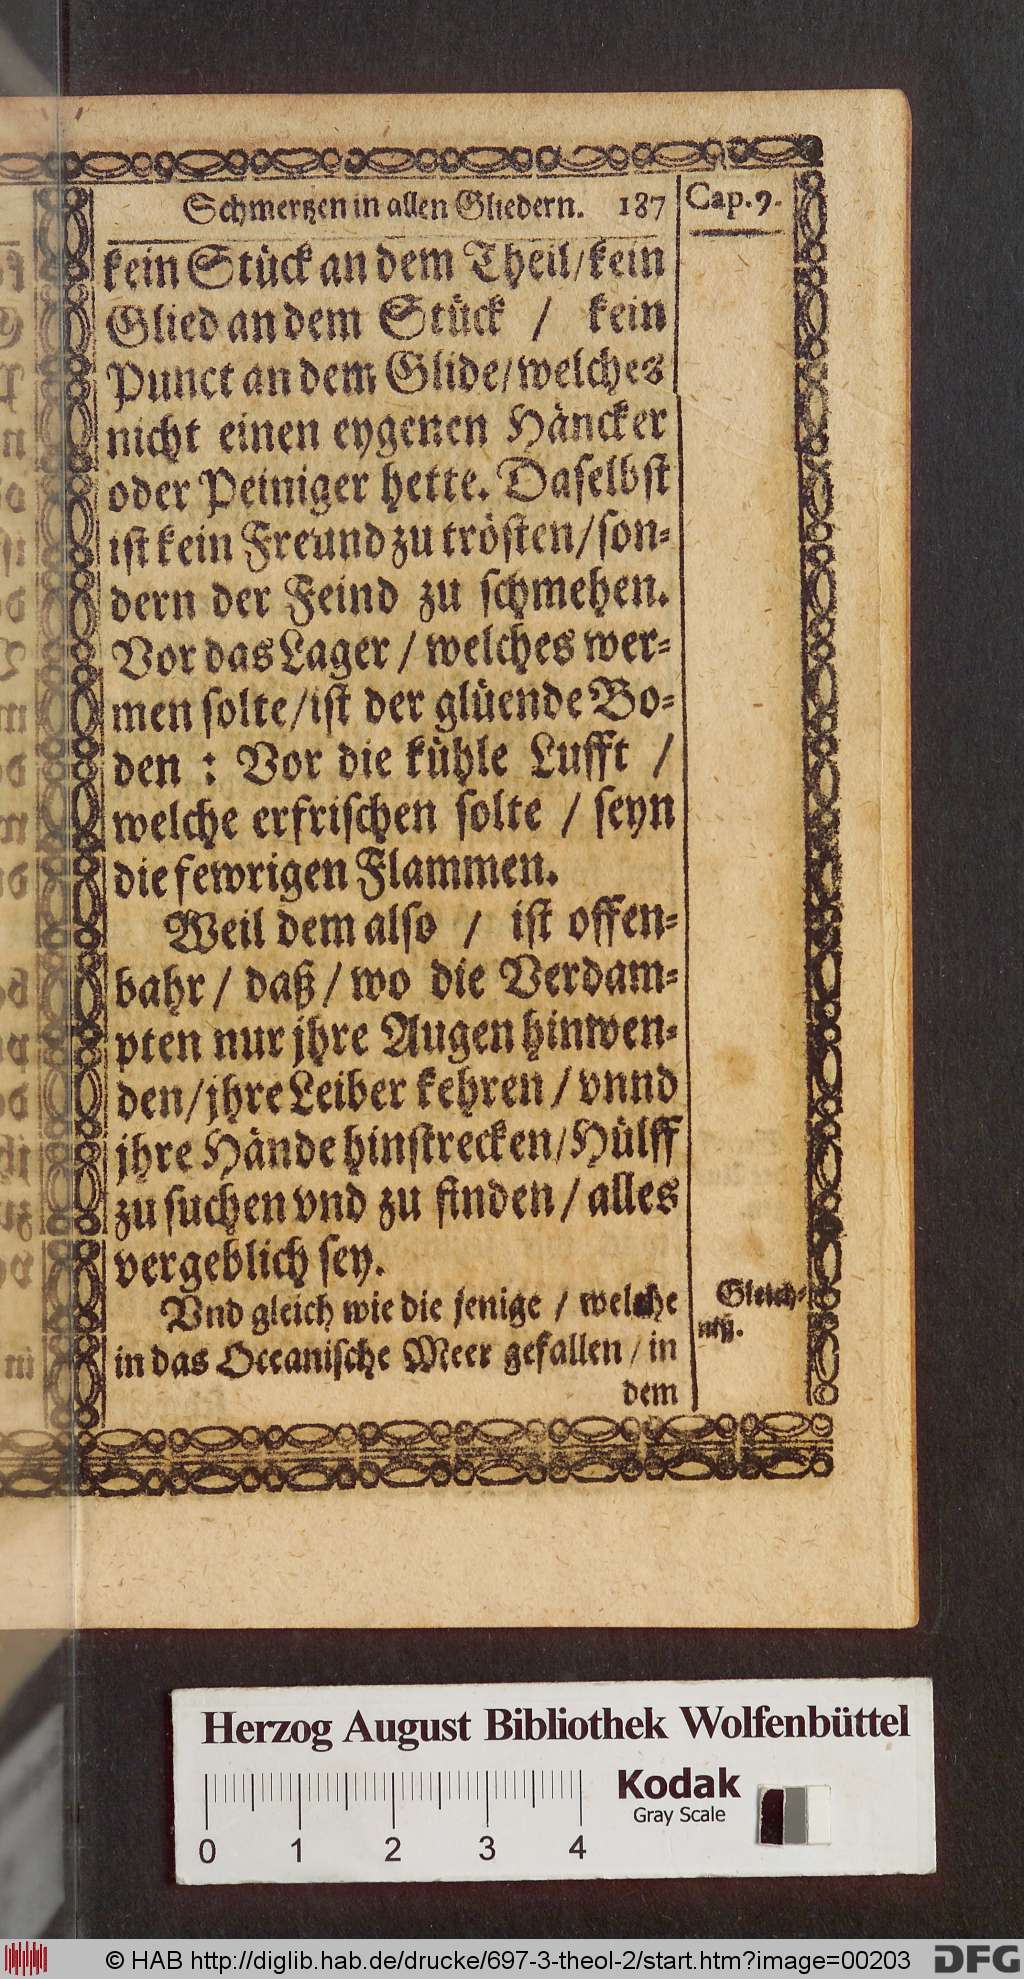 Schmertzen in allen Gliedern. 187
Cap. 9.
kein Stück an dem Theil/kein
Glied an dem Stück / kein
Punct an dem Glide/welches
nicht einen eygenen Häncker
oder Peiniger hette. Daſelbſt
iſt kein Freund zu tröſten/ſon⸗
dern der Feind zu ſchmehen.
Vor das Lager / welches wer⸗
men ſolte/iſt der glüende Bo⸗
den : Vor die kühle Lufft /
welche erfriſchen ſolte / ſeyn
die fewrigen Flammen.
Weil dem alſo / iſt offen⸗
bahr / daß / wo die Verdam⸗
pten nur jhre Augen hinwen⸗
den/jhre Leiber kehren / vnnd
jhre Hände hinſtrecken/Hülff
zu ſuchen vnd zu finden / alles
vergeblich ſey.
Vnd gleich wie die jenige / welche
in das Oceaniſche Meer gefallen / in
dem
Gleich⸗
niß.
Herzog August Bibliothek Wolfenbüttel
Kodak
Gray Scale
0 1 2 3 4
© HAB http://diglib.hab.de/drucke/697-3-theol-2/start.htm?image=00203
DFG